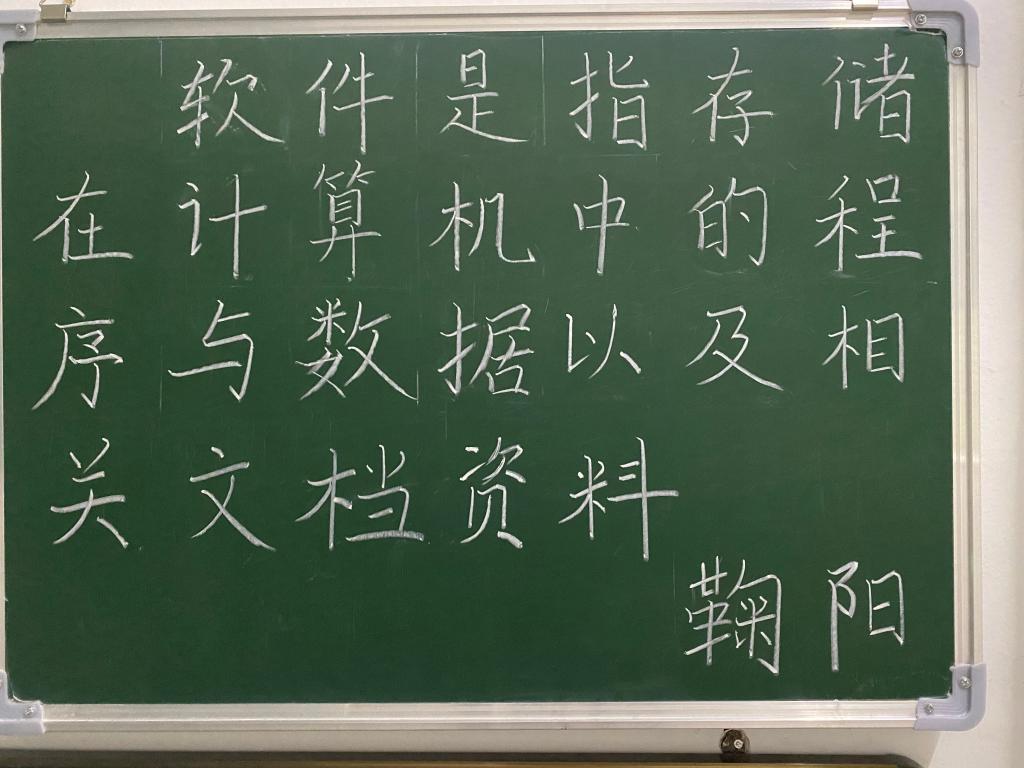 软件是指存储
在计算机中的程
序与数据以及相
关文档资料
鞠阳